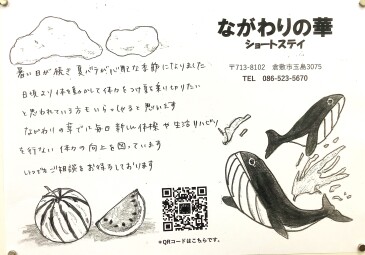 ながわりの華
ショートステイ
〒713-8102 倉敷市玉島3075
TEL 086-523-5670
暑い日が続き 夏バテが心配な季節になりました
日頃より体を動かして体力をつけ夏を乗り切りたい
と思われている方もいらっしゃると思います
ながわりの華でも毎日新しい体操や生活リハビリ
を行ない体力の向上を図っています
いつでもご相談をお待ちしております
*QRコードはこちらです。